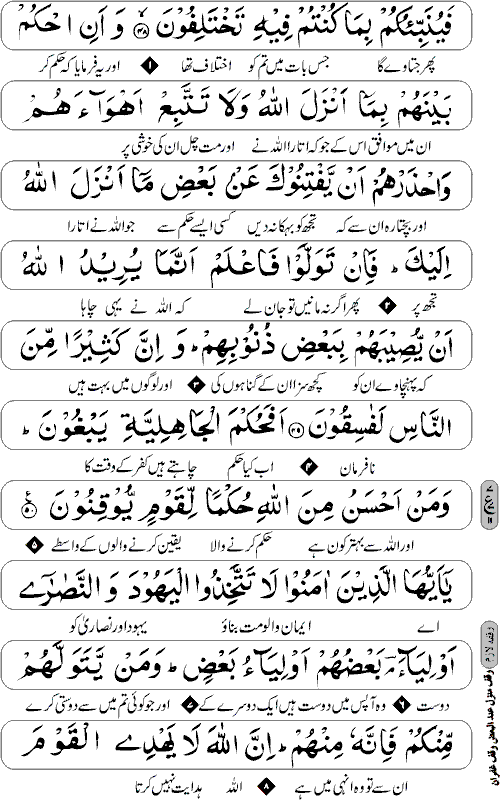 فَيُنَبِّئُكُمْ بِمَا كُنْتُمْ فِيْهِ تَخْتَلِفُوْنَ ۙ﴿۴۸﴾ وَ اَنِ احْكُمْ
پھر جتاوے گا جس بات میں تم کو اختلاف تھا ۱ اور یہ فرمایا کہ حکم کر
بَيْنَهُمْ بِمَاۤ اَنْزَلَ اللّٰهُ وَلَا تَتَّبِعْ اَهْوَآءَهُمْ
ان میں موافق اس کے جو کہ اتارا اللہ نے اور مت چل ان کی خوشی پر
وَاحْذَرْهُمْ اَنْ يَّفْتِنُوْكَ عَنْۢ بَعْضِ مَاۤ اَنْزَلَ اللّٰهُ
اور بچتا رہ ان سے کہ تجھ کو بہکا نہ دیں کسی ایسے حکم سے جو اللہ نے اتارا
اِلَيْكَ ؕ فَاِنْ تَوَلَّوْا فَاعْلَمْ اَنَّمَا يُرِيْدُ اللّٰهُ
تجھ پر ۲ پھر اگر نہ مانیں تو جان لے کہ اللہ نے یہی چاہا
اَنْ يُّصِيْبَهُمْ بِبَعْضِ ذُنُوْبِهِمْ ؕ وَ اِنَّ كَثِيْرًا مِّنَ
کہ پہنچاوے ان کو کچھ سزا ان کے گناہوں کی ۳ اور لوگوں میں بہت ہیں
النَّاسِ لَفٰسِقُوْنَ ﴿۴۹﴾ اَفَحُكْمَ الْجَاهِلِيَّةِ يَبْغُوْنَ ؕ
نافرمان ۴ اب کیا حکم چاہتے ہیں کفر کے وقت کا
وَمَنْ اَحْسَنُ مِنَ اللّٰهِ حُكْمًا لِّقَوْمٍ يُّوْقِنُوْنَ ﴿۵۰﴾ ع
اور اللہ سے بہتر کون ہے حکم کرنے والا یقین کرنے والوں کے واسطے ۵
يٰۤاَيُّهَا الَّذِيْنَ اٰمَنُوْا لَا تَتَّخِذُوا الْيَهُوْدَ وَ النَّصٰرٰۤى
اے ایمان والو مت بناؤ یہود اور نصاریٰ کو
اَوْلِيَآءَ ۘؔ بَعْضُهُمْ اَوْلِيَآءُ بَعْضٍ ؕ وَمَنْ يَّتَوَلَّهُمْ
دوست ۶ وہ آپس میں دوست ہیں ایک دوسرے کے ۷ اور جو کوئی تم میں سے دوستی کرے
مِّنْكُمْ فَاِنَّهٗ مِنْهُمْ ؕ اِنَّ اللّٰهَ لَا يَهْدِى الْقَوْمَ
ان سے تو وہ انہی میں ہے ۸ اللہ ہدایت نہیں کرتا
وقف لازم